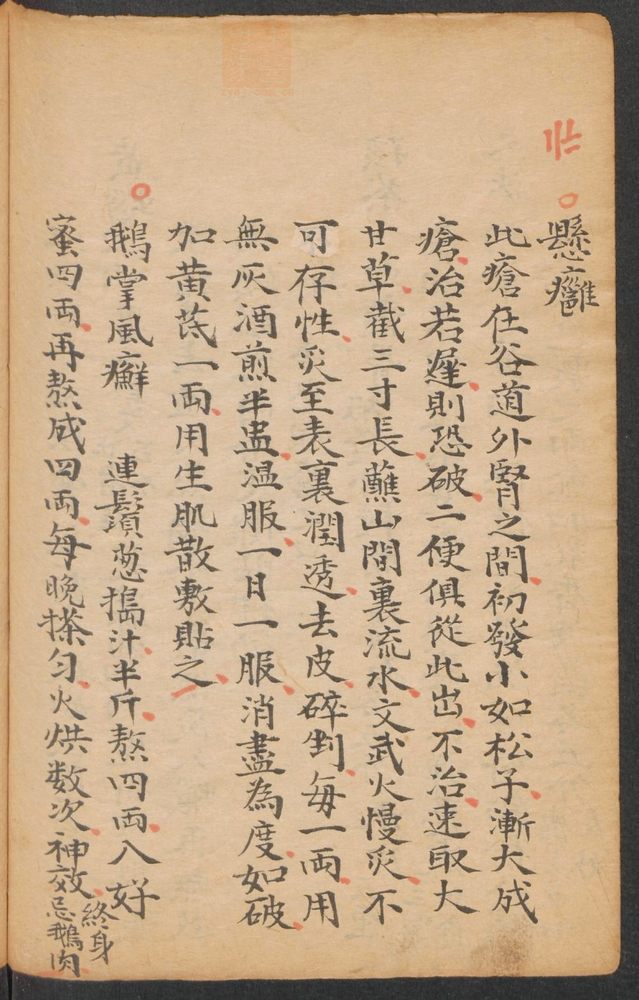 懸癰
此瘡在谷道外腎之間初發小如松子漸大成
瘡治若遲則恐破二便俱從此出不治速取大
甘草截三寸長蘸山間裏流水文武火慢炙不
可存性炙至表裏潤透去皮碎剉每一兩用
無灰酒煎半盅温服一日一服消盡為度如破
加黄芪一兩用生肌散敷貼之
鵝掌風癬 連鬚葱搗汁半斤熬四兩入好
蜜四兩再熬成四兩每晚搽匀火烘数次神效終身忌鵝肉